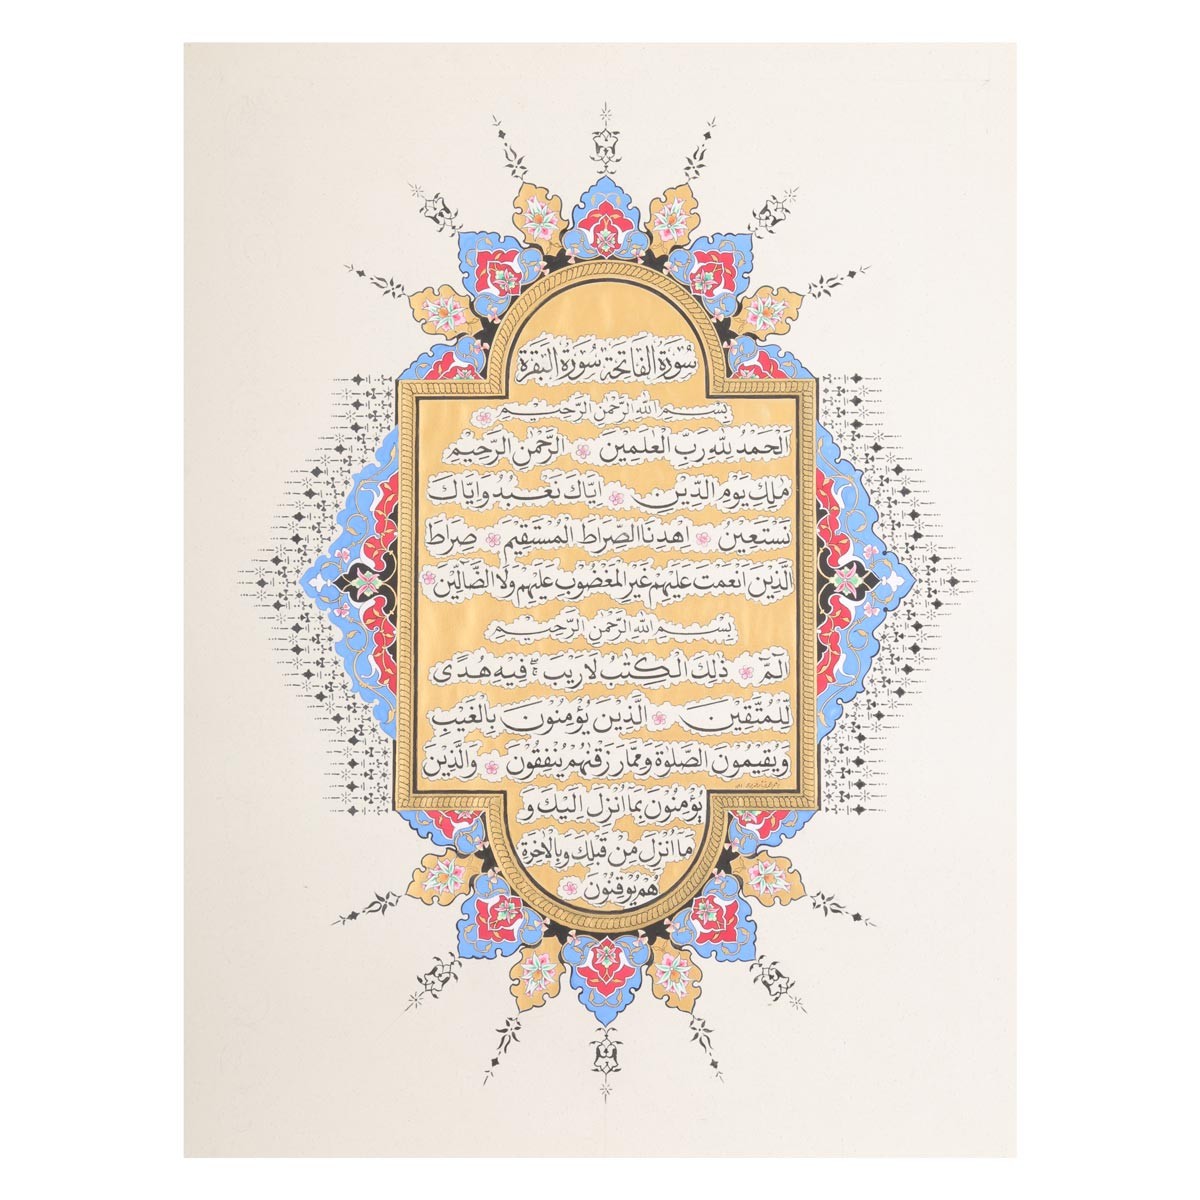 سُورَةُ الْفَاتِحَة سُورَةُ الْبَقَرَة
بِسْمِ اللهِ الرَّحْمٰنِ الرَّحِيْمِ
اَلْحَمْدُ لِلّٰهِ رَبِّ الْعٰلَمِيْنَ الرَّحْمٰنِ الرَّحِيْمِ
مٰلِكِ يَوْمِ الدِّيْنِ اِيَّاكَ نَعْبُدُ وَاِيَّاكَ
نَسْتَعِيْنُ اِهْدِنَا الصِّرَاطَ الْمُسْتَقِيْمَ صِرَاطَ
الَّذِيْنَ اَنْعَمْتَ عَلَيْهِمْ غَيْرِ الْمَغْضُوْبِ عَلَيْهِمْ وَلَا الضَّآلِّيْنَ
بِسْمِ اللهِ الرَّحْمٰنِ الرَّحِيْمِ
الٓمّٓ ذٰلِكَ الْكِتٰبُ لَا رَيْبَ ۚ فِيْهِ هُدًى
لِّلْمُتَّقِيْنَ الَّذِيْنَ يُؤْمِنُوْنَ بِالْغَيْبِ
وَيُقِيْمُوْنَ الصَّلٰوةَ وَمِمَّا رَزَقْنٰهُمْ يُنْفِقُوْنَ وَالَّذِيْنَ
يُؤْمِنُوْنَ بِمَا اُنْزِلَ اِلَيْكَ وَ
مَا اُنْزِلَ مِنْ قَبْلِكَ وَبِالْاٰخِرَةِ
هُمْ يُوْقِنُوْنَ